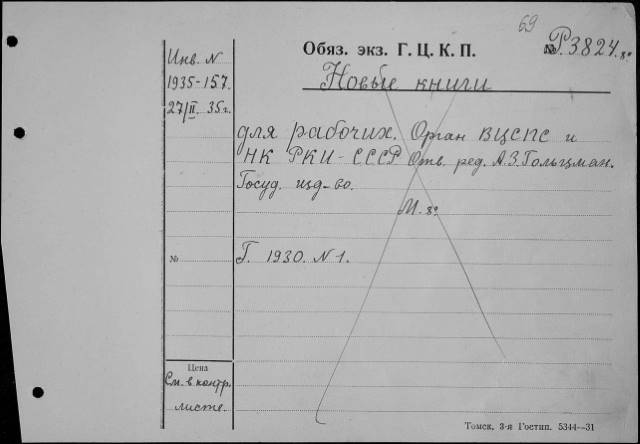 69
Обяз. экз. Г. Ц. К. П.
№ Р.3824. 8°
Инв. N
1935-157.
27/II. 35г.
Новые книги
для рабочих. Орган ВЦСПС и
НК РКИ-СССР Отв. ред. А.З.Гольцман.
Госуд. изд-во.
М. 8°
№
Г. 1930. N 1.
Цена
См. в контр.
листе.
Томск, 3-я Гостип. 5344—31